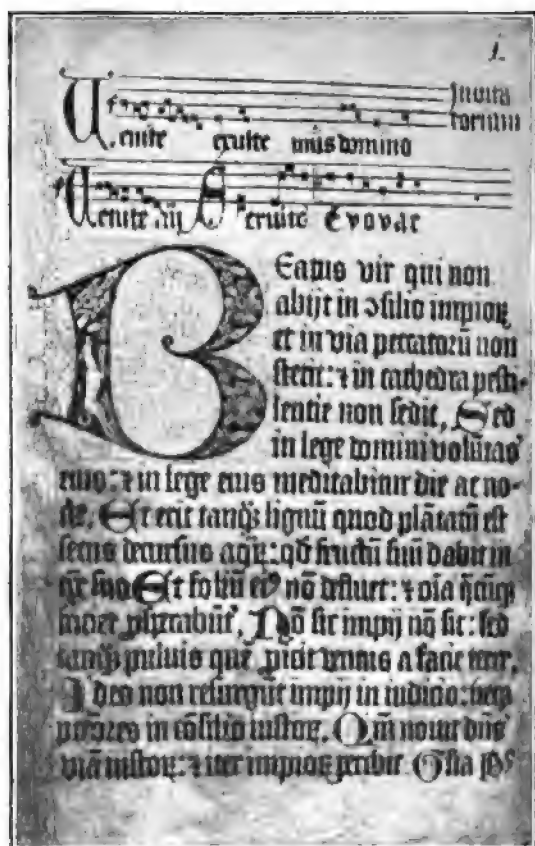 Inuita
torium
Uenite exulte mus domino
Uenite Seruite Evovae
Beatus vir qui non
abijt in ꝯsilio impioꝝ
et in via peccatorū non
stetit: ⁊ in cathedra pesti-
lentie non sedit, Sed
in lege domini volūtas
eius: ⁊ in lege eius meditabitur die ac no-
cte, Et erit tanꝙ̃ lignū quod plātatū est
secus decursus aqͣꝝ: qd̓ fructū suū dabit in
tꝑe suo Et foliū eiꝰ nō defluet: ⁊ oīa q̄cūqꝫ
faciet ꝓsperabūt᷑, Nō sic impij nō sic: sed
tanꝙ̃ puluis quē ꝓicit ventus a facie terre,
Ideo non resurgūt impij in iudicio: neqꝫ
pctōres in cōsilio iustoꝝ, Qm̄ nouit dn̄s
viā iustoꝝ: ⁊ iter impioꝝ peribit Glīa Pͥ